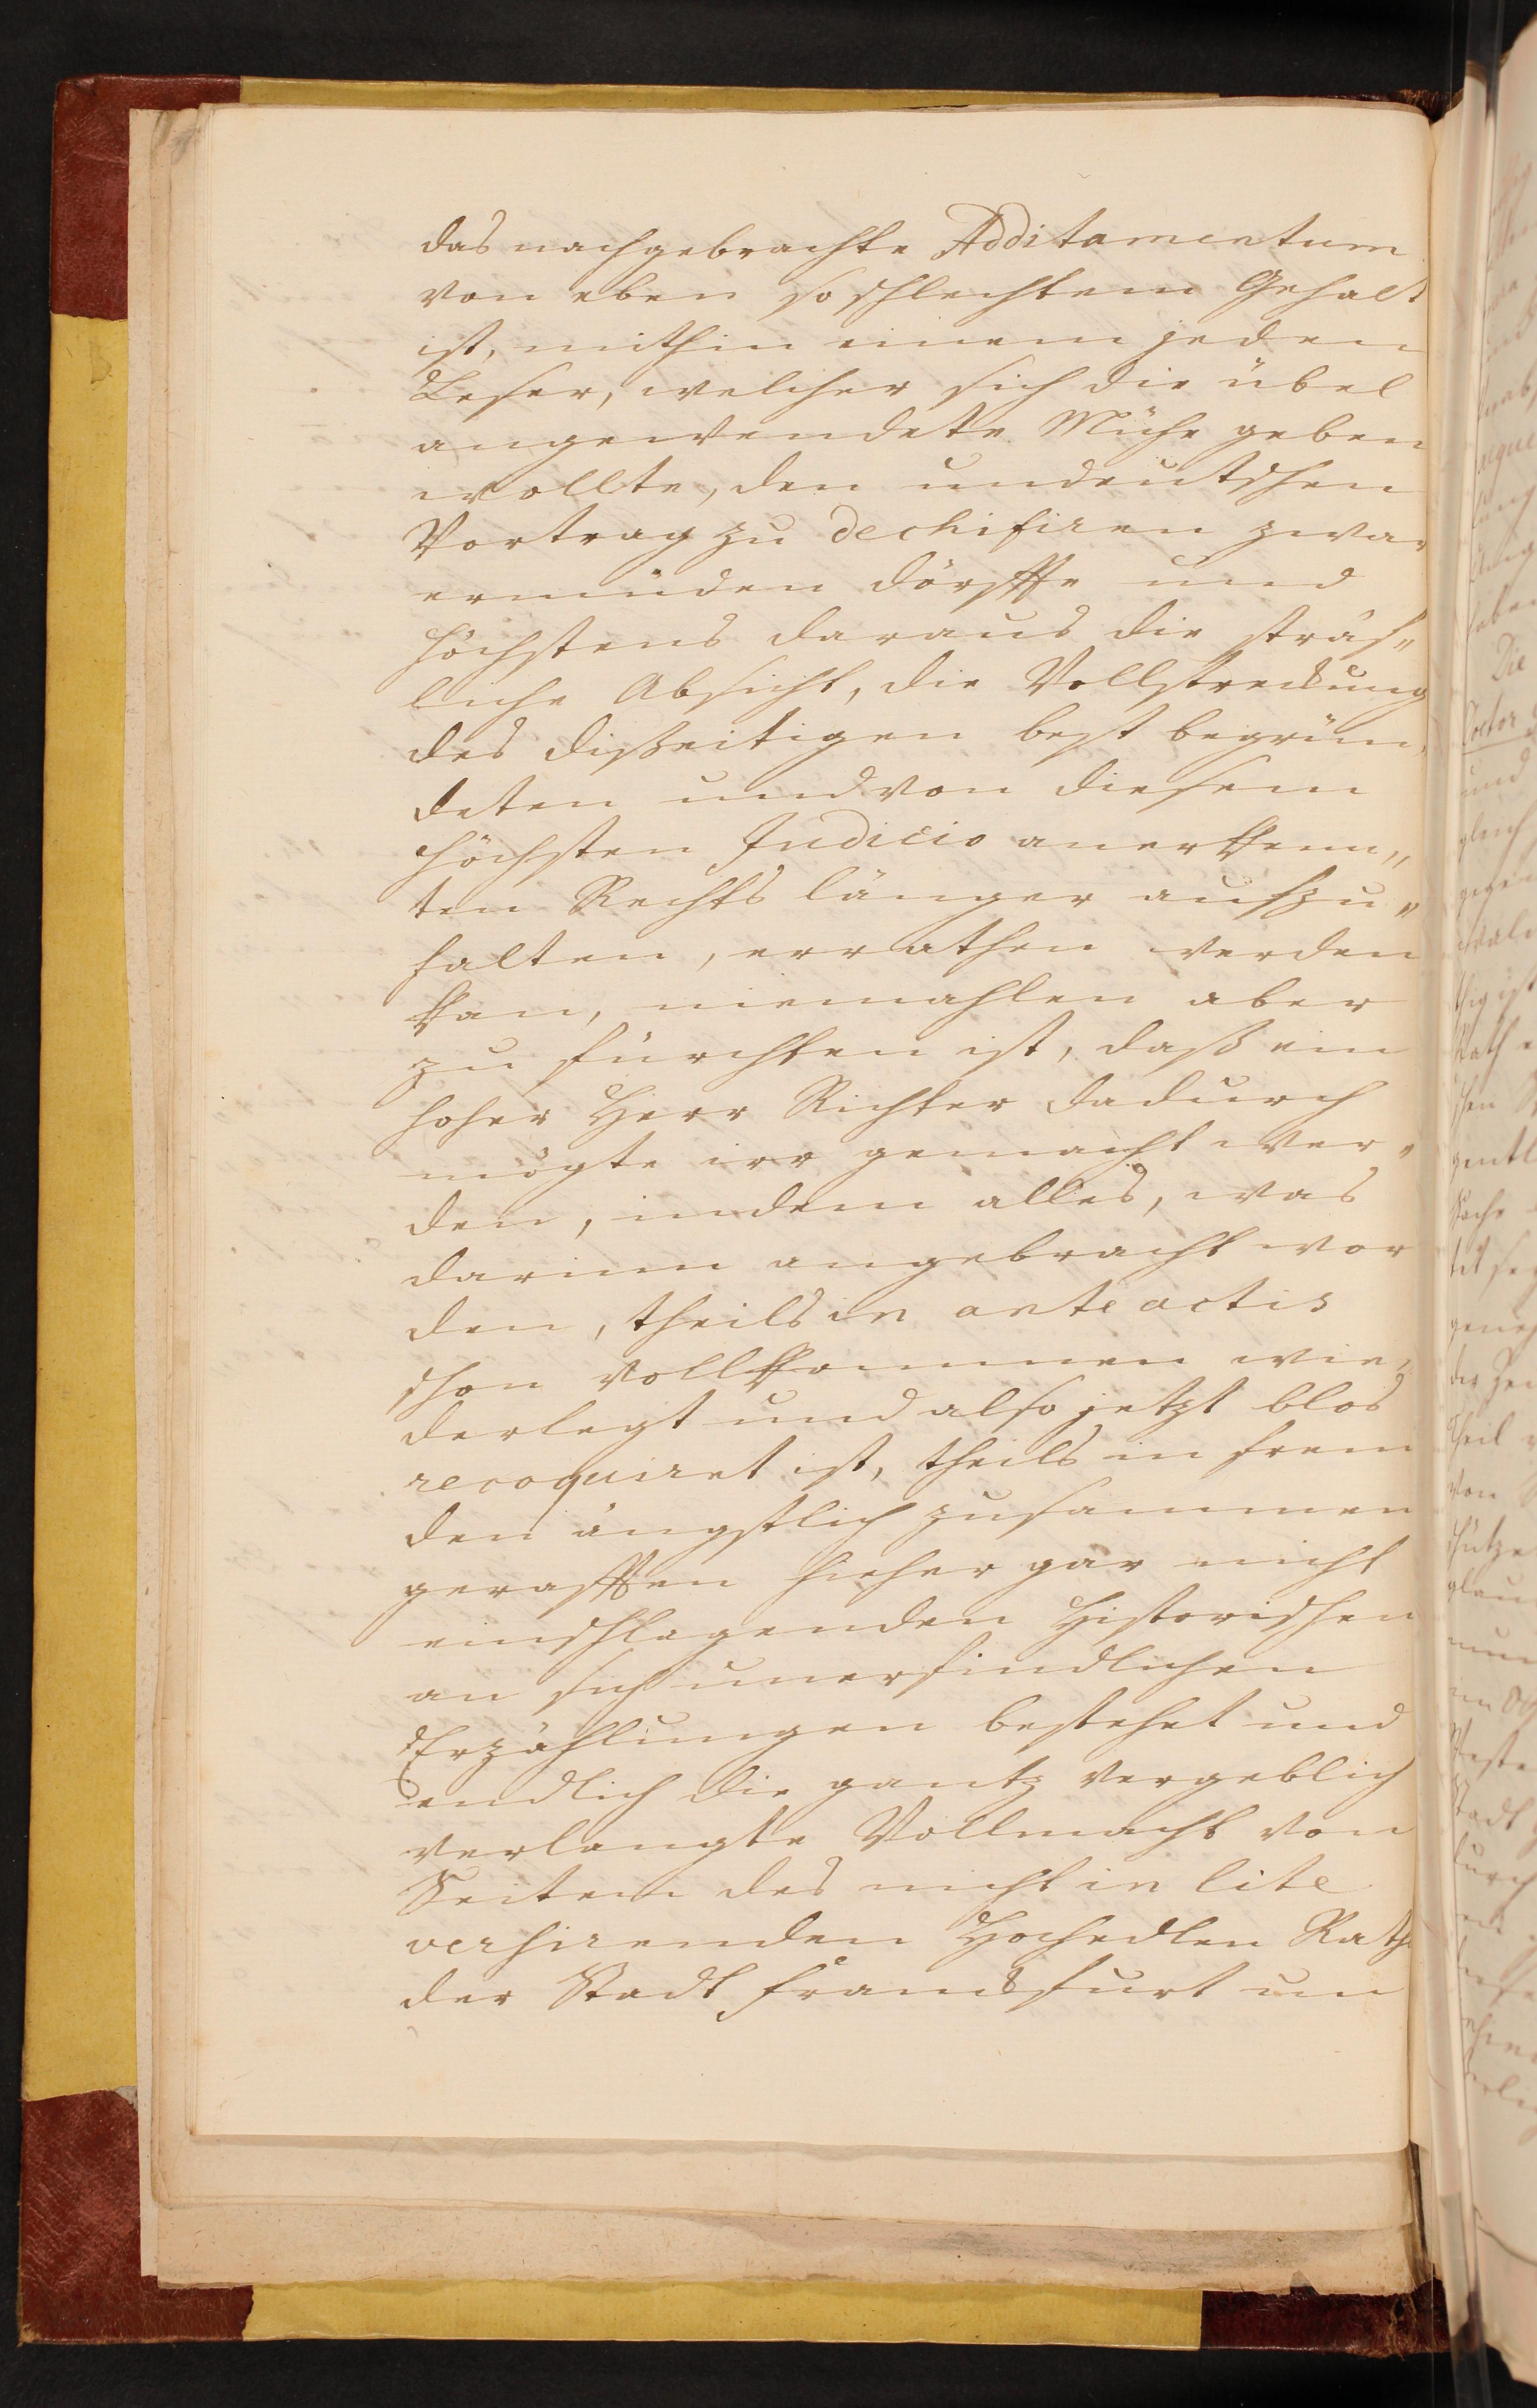 das nachgebrachte Additamentum
von eben so schlechtem Gehalt
ist, mithin einem jeden
Leser, welcher sich die übel
angewendete Mühe geben
wollte, den undeutschen
Vortrag zu dechifiren zwar
ermüden dörffte und
höchstens daraus die sträf„
liche Absicht, die Vollstreckung
des disseitigen best begrün„
deten und von diesem
höchsten Judicio anerkenn„
ten Rechts länger aufzu„
halten, errathen werden
kan, niemahlen aber
zu fürchten ist, daß ein
hoher Herr Richter dadurch
mögte irr gemacht wer„
den, indem alles, was
darinn angebracht wor
den, theils in anteactis
schon vollkommen wie„
derlegt und also jetzt blos
recoquiret ist, theils in frem
den ängstlich zusammen
gerafften hieher gar nicht
einschlagenden Historischen
an sich unerfindlichen
Erzählungen bestehet und
endlich die gantz vergeblich
verlangte Vollmacht von
Seiten des nicht in lite
versirenden Hochedlen Rath
der Stadt Franckfurt un